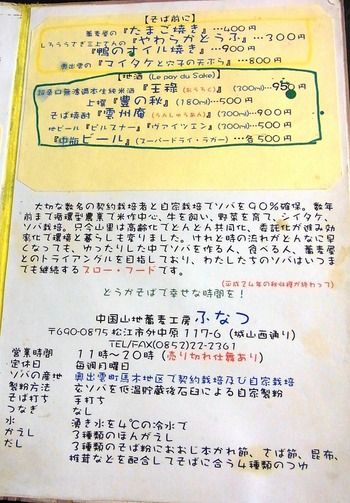 【そば前に】
蕎麦屋の『たまご焼き』…400円
しろうさぎ三上さんの『やわらかとうふ』…300円
『鴨のすイル焼き』…900円
奥出雲の『マイタケと穴子の天ぷら』…800円
【地酒 (Le pay du Sake)】
超辛口無濾過本生純米酒『王祿(おうろく)』(300ml)…950円
上撰『豊の秋』(180ml)…500円
そば焼酎『雲州庵(うんしゅうあん)』(200ml)…700円
地ビール『ピルスナー』『ヴァイツェン』(300ml)…500円
『中瓶ビール』(スーパードライ・ラガー)…各500円
大切な数名の契約栽培者と自家栽培でソバを90%確保。数年
前まで循環型農業で米作中心、牛を飼い、野菜を育て、シイタケ、
ソバ栽培。只今山里は高齢化でどんどん共同化、委託化が進み効
率化で環境と暮らしも変りました。けれど時の流れがどんなに早
くなっても、ゆったりした中でソバを作る人、食べる人、蕎麦屋
とのトライアングルを目指しており、わたしたちのソバはいつま
でも継続するスロー・フードです。
(平成24年の秋収穫が終わって)
どうかそばで幸せな時間を!
中国山地蕎麦工房 ふなつ
〒690-0875 松江市外中原117-6 (城山西通り)
TEL/FAX(0852)22-2361
営業時間 11時~20時 (売り切れ仕舞あり)
定休日 毎週月曜日
ソバの産地 奥出雲町馬木地区で契約栽培及び自家栽培
製粉方法 玄ソバを低温貯蔵後石臼による自家製粉
そば打ち 手打ち
つなぎ なし
水 湧き水を4℃の冷水で
かえし 3種類のほんがえし
だし 3種類のそば粉におおじ本かれ節、さば節、昆布、
椎茸などを配合してそばに合う4種類のつゆ